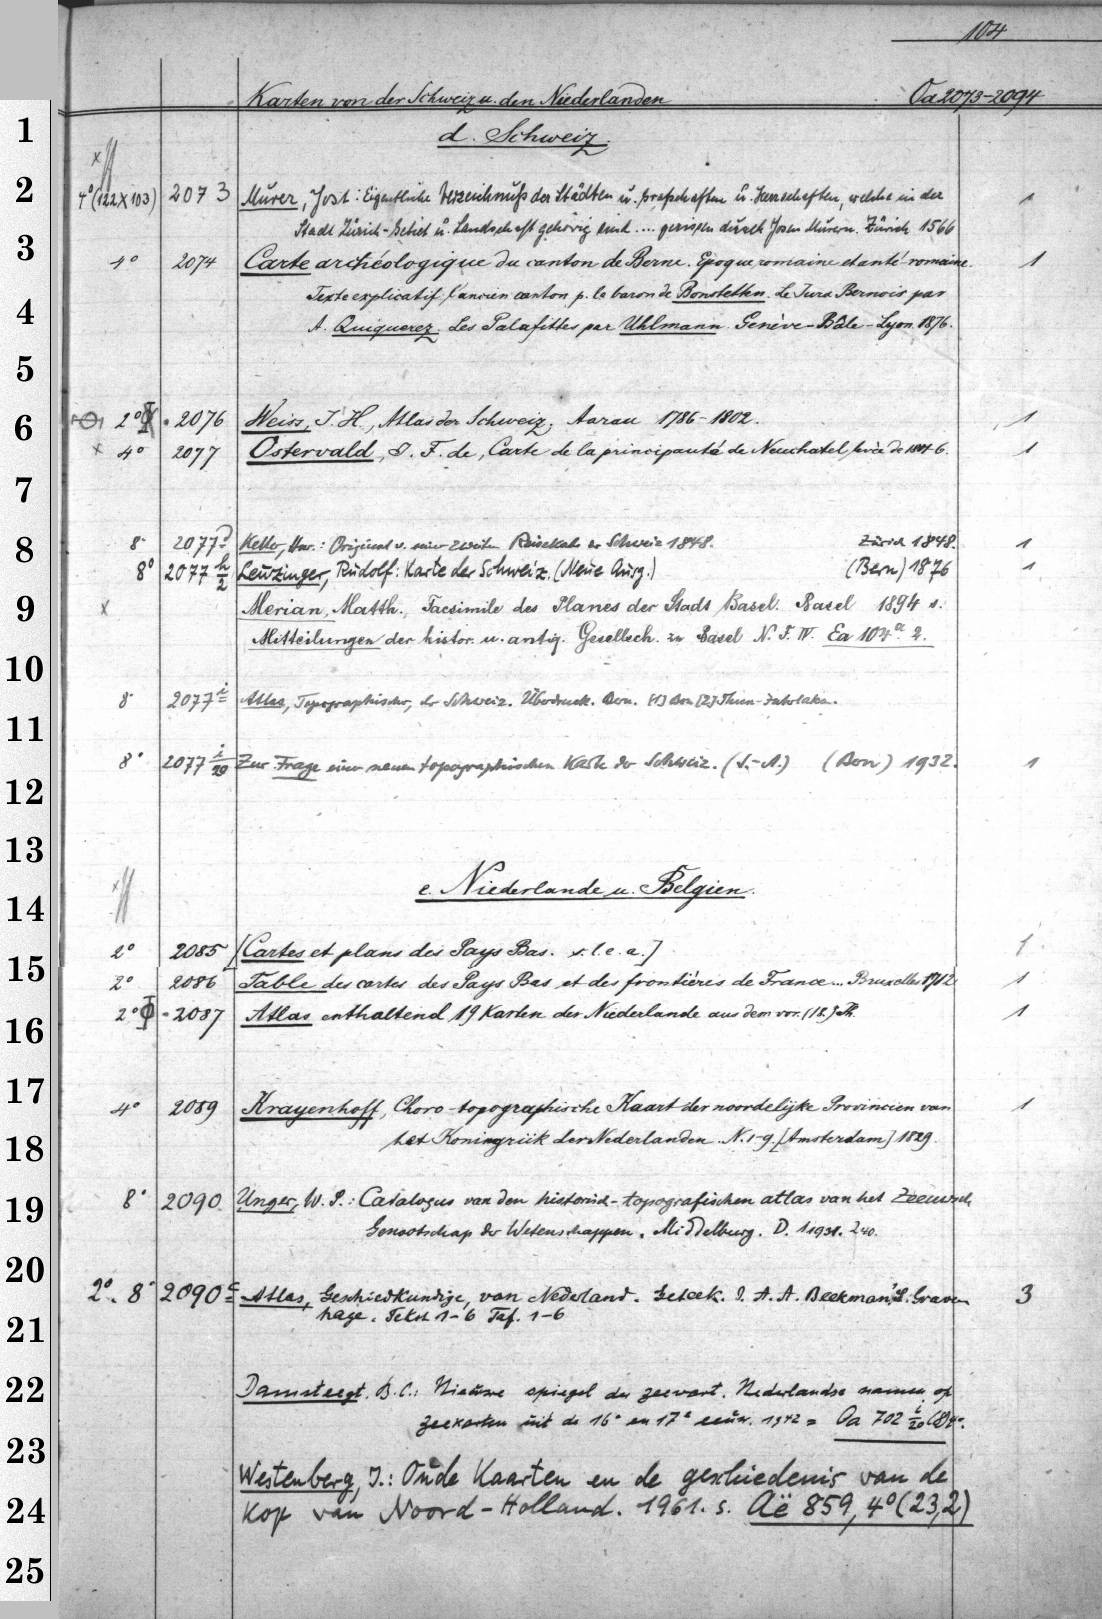 104
Karten von der Schweiz u. den Niederlanden Oa 2073-2094
1 d. Schweiz.
2 4° (122x103) 2073 Murer, Jost: Eigentliche Verzeichnuß der Städten u. Grafschaften u. Herrschaften, welche in der 1
Stadt Zürich-Gebiet u. Landschaft gehörig sind .... gerissen durch Josen Murern. Zürich 1566
3 4° 2074 Carte archéologique du canton de Berne. Epoque romaine et anté-romaine. 1
Texte explicatif, l'ancien canton p. le baron de Bonstetten. Le Jura Bernois par
4 A. Quiquerez. Les Palafittes par Uhlmann. Genève-Bâle-Lyon. 1876.
5
6 2° 2076 Weiss, J. H., Atlas der Schweiz. Aarau 1786-1802. 1
x 4° 2077 Ostervald, J. F. de, Carte de la principauté de Neuchatel, levée de 1801-6. 1
7
8 8° 2077 Keller, Hnr.: Original u. Reisekarte der Schweiz 1848. Zürich 1848. 1
8° 2077 h/2 Leuzinger, Rudolf: Karte der Schweiz. (Neue Ausg.) (Bern) 1876 1
9 x Merian, Matth., Facsimile des Planes der Stadt Basel. Basel 1894 s.
Mitteilungen der histor. u. antiq. Gesellsch. zu Basel N. F. IV. Ea 104 a. 2.
10
8° 2077 i Atlas, Topographischer, der Schweiz. Überdruck. Bern. [1] Bern [2] Thun-
11
12 8° 2077 i/20 Zur Frage einer neuen topographischen Karte der Schweiz. (S.-A.) (Bern) 1932. 1
13
14 e. Niederlande u. Belgien.
15 2° 2085 [Cartes et plans des Pays Bas. s. l. e. a.] 1
2° 2086 Table des cartes des Pays Bas et des frontières de France... Bruxelles 1712 1
16 2° 2087 Atlas enthaltend 19 Karten der Niederlande aus dem vor. (18.) Jh. 1
17 4° 2089 Krayenhoff, Choro-topographische Kaart der noordelijke Provincien van 1
18 het Koningrijk der Nederlanden. N. 1-9. [Amsterdam] 1829.
19 8° 2090. Unger, W. S.: Catalogus van den historisch-topografischen atlas van het Zeeuwsch
Genootschap der Wetenschappen. Middelburg. D. 1 1931. 240.
20 2°. 8° 2090 a Atlas, Geschiedkundige, van Nederland. Geteek. J. A. A. Beekman, 's Graven 3
21 hage. Tekst 1-6 Taf. 1-6
22 Damsteegt, B. C.: Nieuwe spiegel der zeevart. Nederlandse namen op
zeekaarten uit de 16e en 17e eeuw. 1942 = Oa 702 i/20 (8) 4°.
23 Westenberg, J.: Oude Kaarten en de geschiedenis van de
24 Kop van Noord-Holland. 1961. s. Aë 859, 4° (23,2)
25